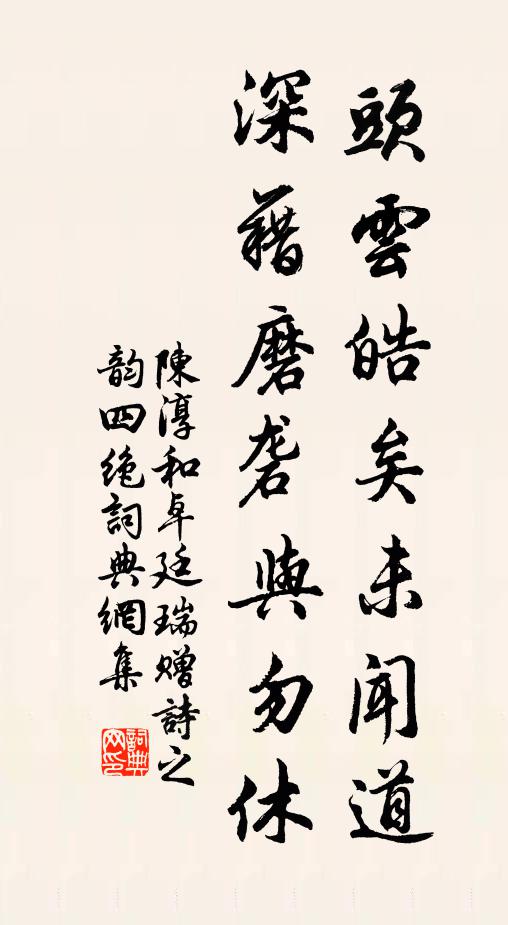 頭雲皓矣未聞道
深藉磨砻與勿休
陳淳和卓廷瑞贈詩之
韵四绝詞典網集
詞典
网印